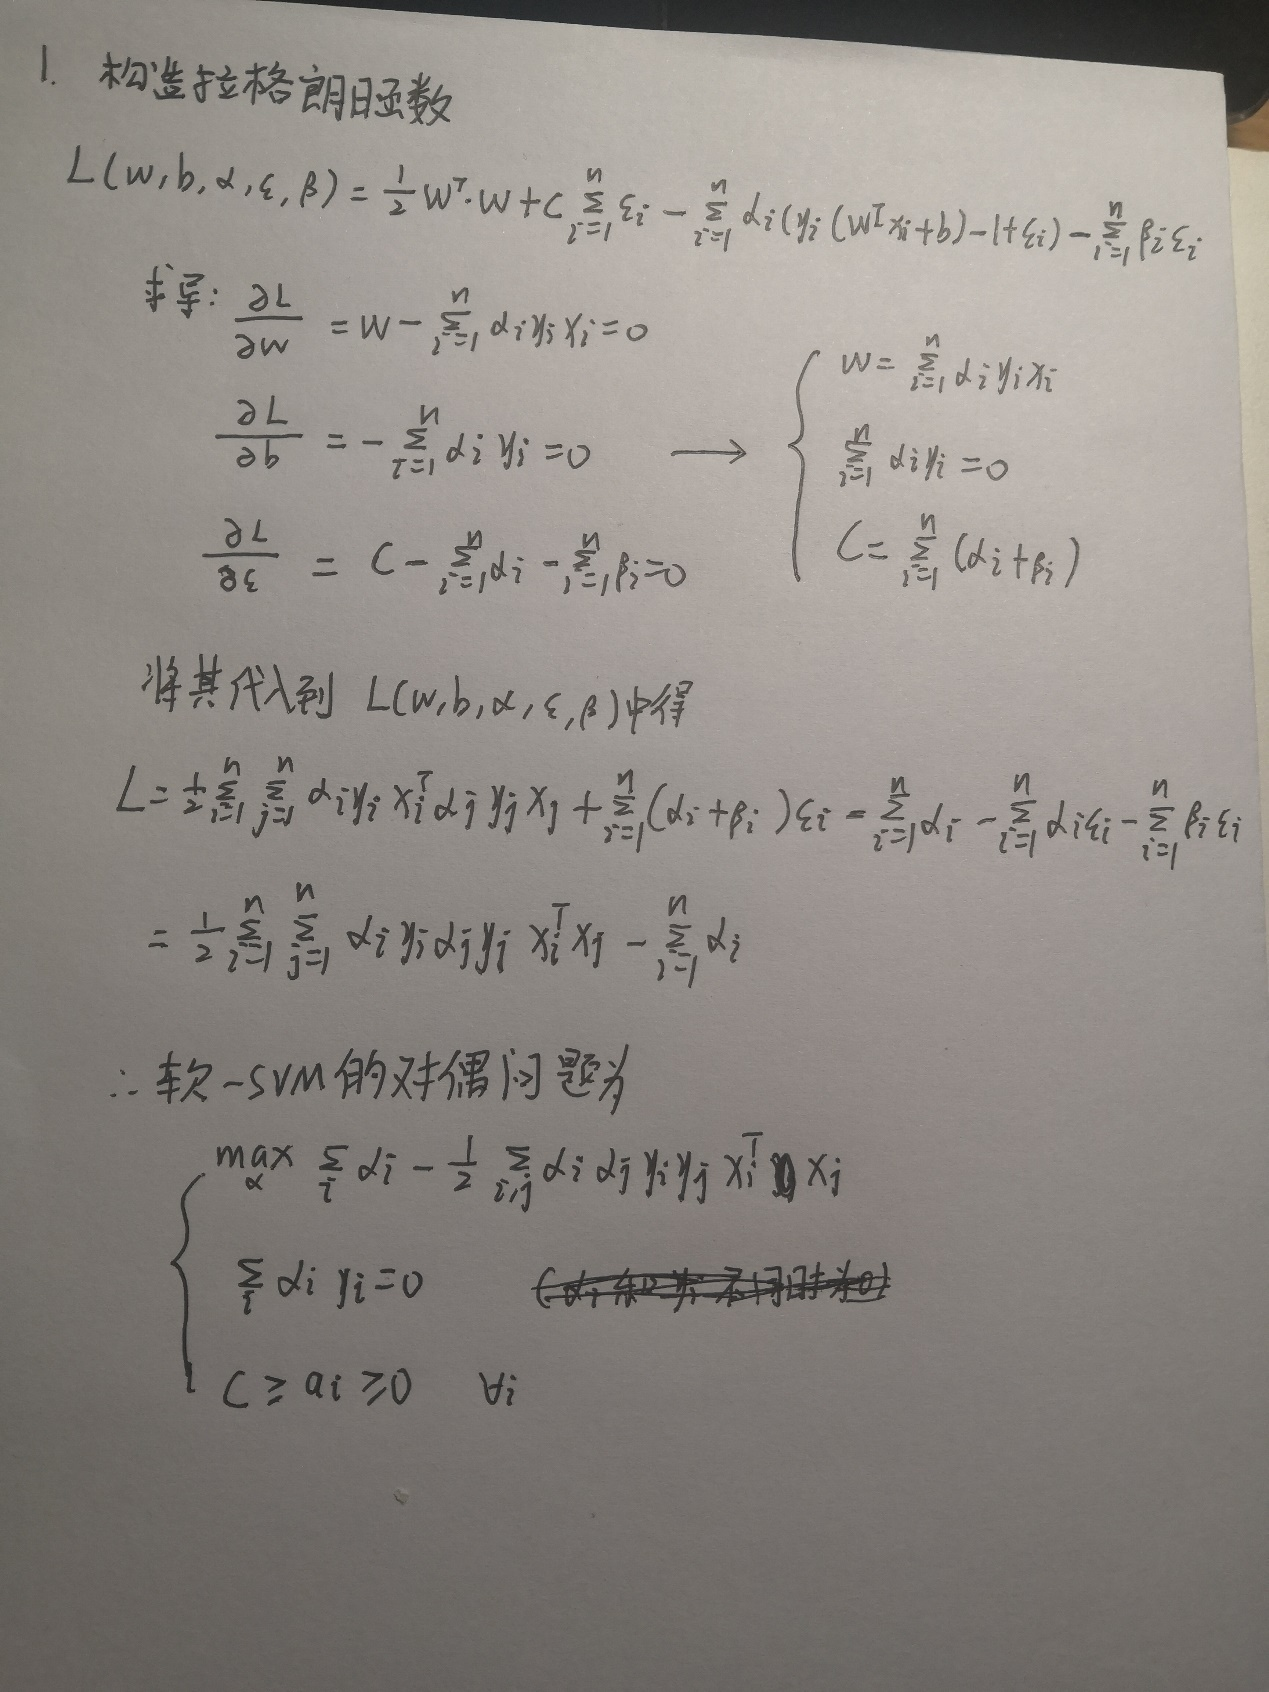 1. 构造拉格朗日函数
L(w,b,α,ε,β) = 1/2 wᵀ·w + C Σ_{i=1}^{n} εi − Σ_{i=1}^{n} αi(yi(wᵀxi+b)−1+εi) − Σ_{i=1}^{n} βiεi
求导: ∂L/∂w = w − Σ_{i=1}^{n} αi yi xi = 0
∂L/∂b = − Σ_{i=1}^{n} αi yi = 0 → { w = Σ_{i=1}^{n} αi yi xi
Σ_{i=1}^{n} αi yi = 0
∂L/∂ε = C − Σ_{i=1}^{n} αi − Σ_{i=1}^{n} βi = 0
C = Σ_{i=1}^{n} (αi+βi)
将其代入到 L(w,b,α,ε,β)中得
L = 1/2 Σ_{i=1}^{n} Σ_{j=1}^{n} αi yi xiᵀ αj yj xj + Σ_{i=1}^{n} (αi+βi)εi − Σ_{i=1}^{n} αi − Σ_{i=1}^{n} αiεi − Σ_{i=1}^{n} βiεi
= 1/2 Σ_{i=1}^{n} Σ_{j=1}^{n} αi yi αj yj xiᵀ xj − Σ_{i=1}^{n} αi
∴ 软-SVM的对偶问题为
{ max_α Σ_i αi − 1/2 Σ_{i,j} αi αj yi yj xiᵀ xj
Σ_i αi yi = 0
C ≥ ai ≥ 0 ∀i